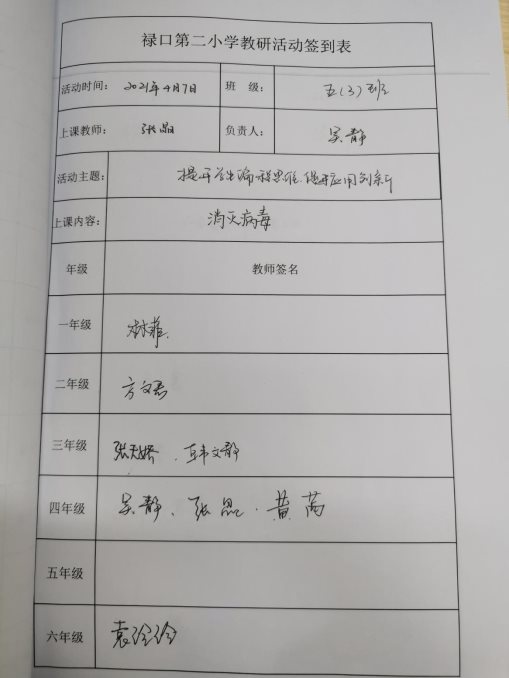 禄口第二小学教研活动签到表
活动时间： 2021年4月7日 班 级： 五(3)班
上课教师： 张晶 负责人： 吴静
活动主题： 提升学生编程思维,促进应用创新
上课内容： 消灭病毒
年级 教师签名
一年级
二年级 方文君
三年级 张天娇、韩文静
四年级 吴静、张晶、黄芮
五年级
六年级 袁玲玲